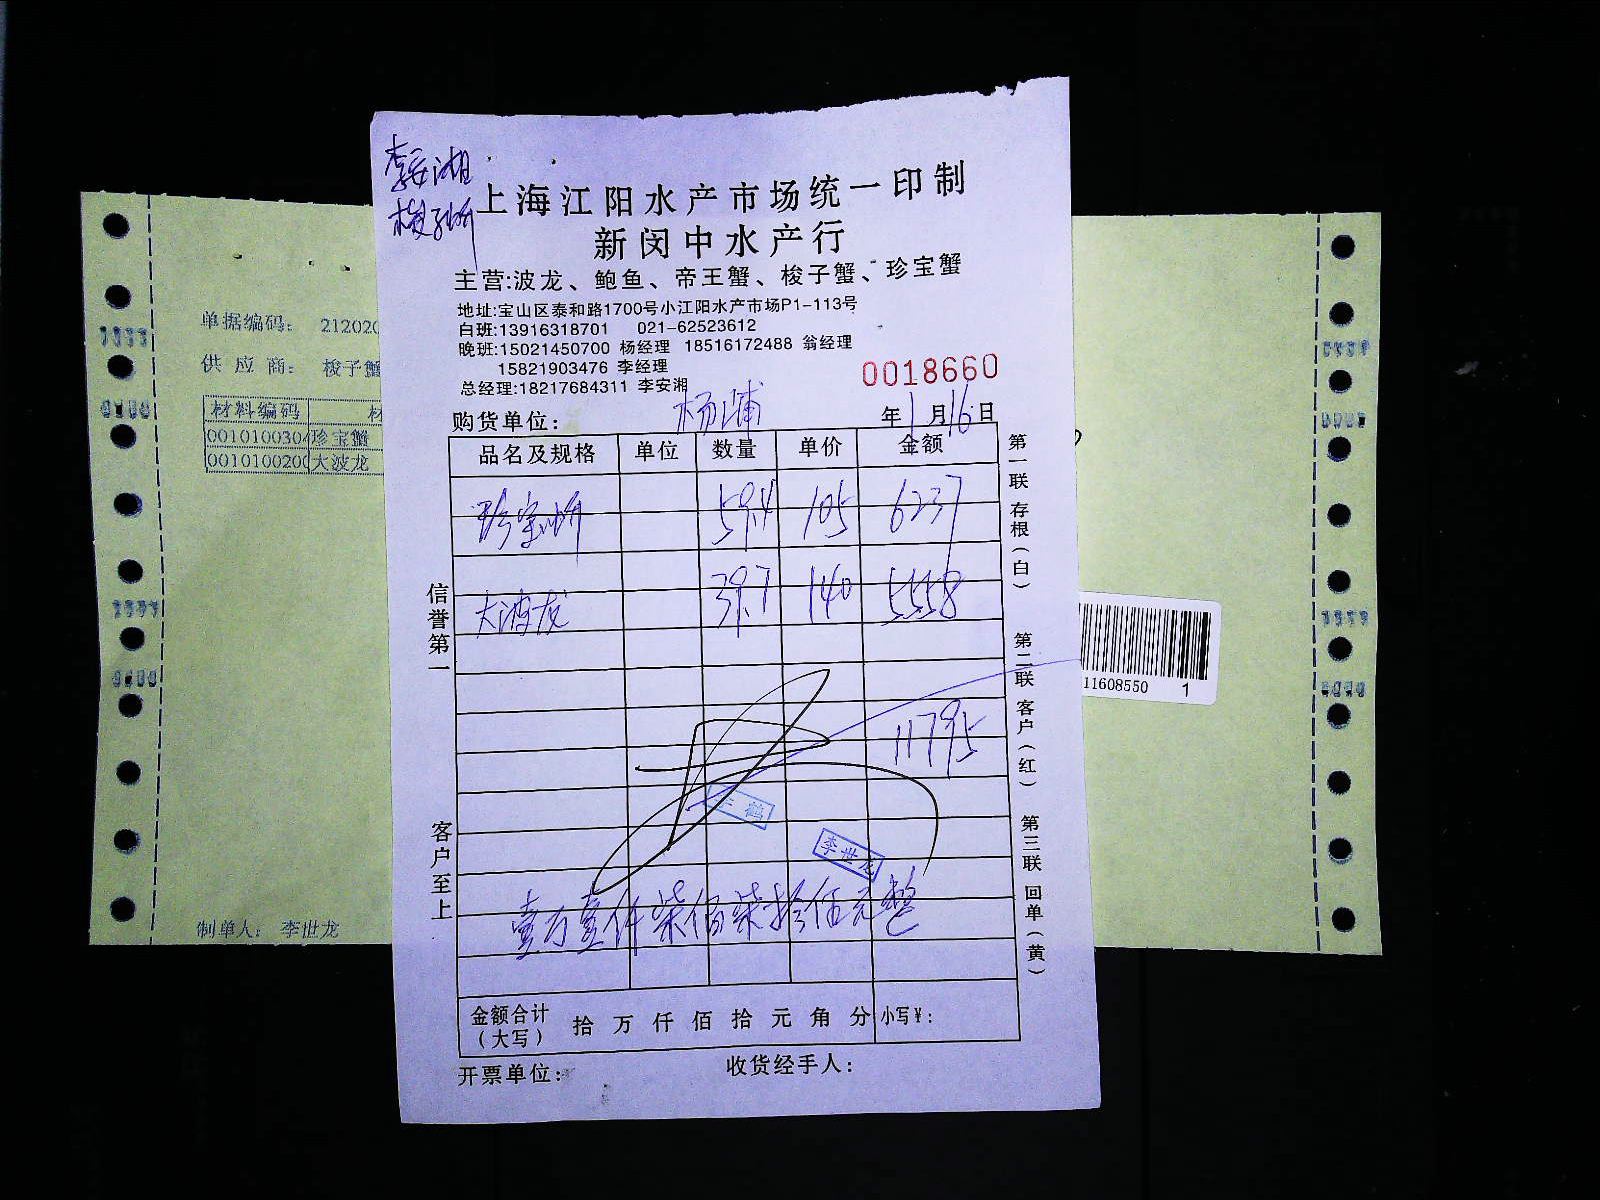 李安湘
梭子蚧
上海江阳水产市场统一印制
新闵中水产行
主营:波龙、鲍鱼、帝王蟹、梭子蟹、珍宝蟹
地址:宝山区泰和路1700号小江阳水产市场P1-113号
白班:13916318701 021-62523612
晚班:15021450700 杨经理 18516172488 翁经理
15821903476 李经理
总经理:18217684311 李安湘
0018660
购货单位: 杨浦 年1月16日
品名及规格 单位 数量 单价 金额
珍宝蚧 59.4 105 6237
大波龙 39.7 140 5558
11795
李世龙
壹万壹仟柒佰柒拾伍元整
金额合计(大写) 拾 万 仟 佰 拾 元 角 分 小写¥:
开票单位: 收货经手人:
信誉第一
客户至上
第一联 存根(白)
第二联 客户(红)
第三联 回单(黄)
单据编码: 212020
供应商: 梭子蟹
材料编码 材
001010030 珍宝蟹
001010020 大波龙
制单人: 李世龙
11608550 1